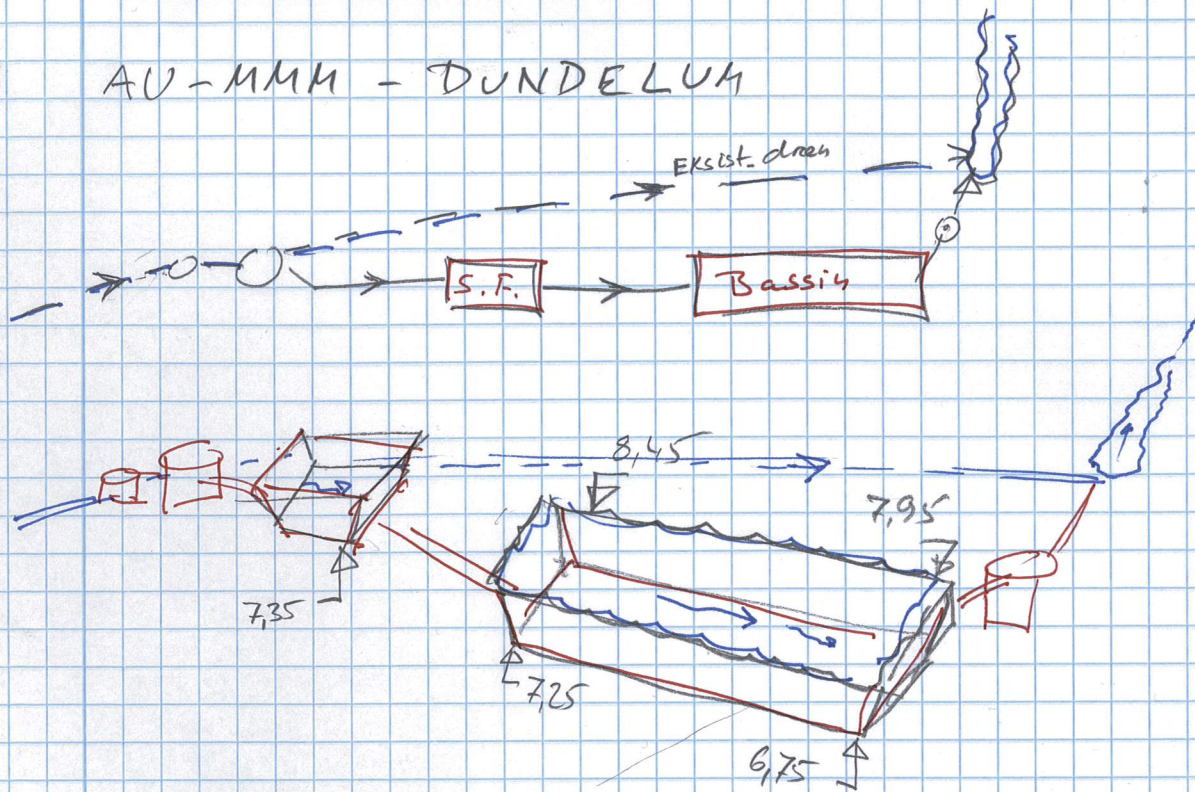 AU-MMM - DUNDELUM
Eksist. dræn
S.F.
Bassin
8,45
7,95
7,35
7,25
6,75